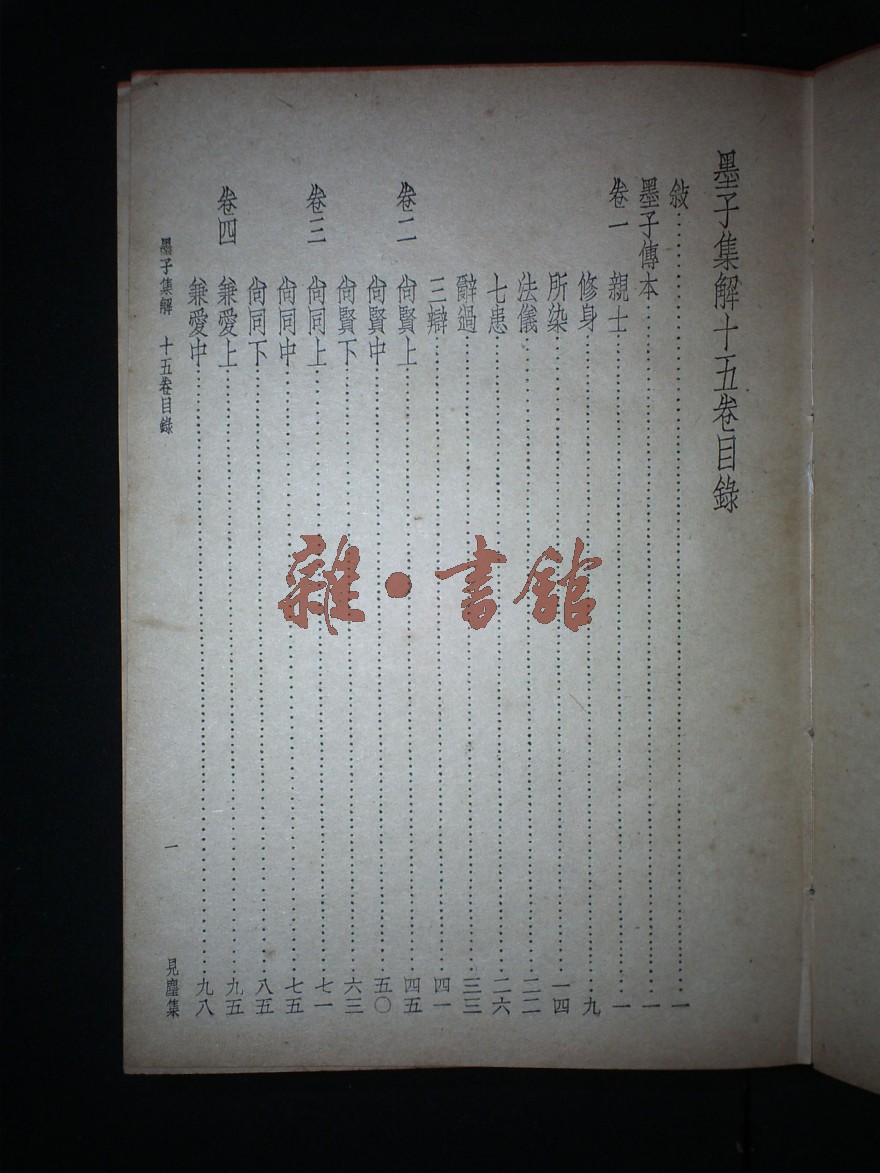 墨子集解十五卷目錄
敍……一
墨子傳本……一
卷一　親士……一
修身……九
所染……一四
法儀……二二
七患……二六
辭過……三三
三辯……四一
卷二　尙賢上……四五
尙賢中……五〇
尙賢下……六三
卷三　尙同上……七一
尙同中……七五
尙同下……八五
卷四　兼愛上……九五
兼愛中……九八
墨子集解　十五卷目錄　一　見塵集
雜·書館